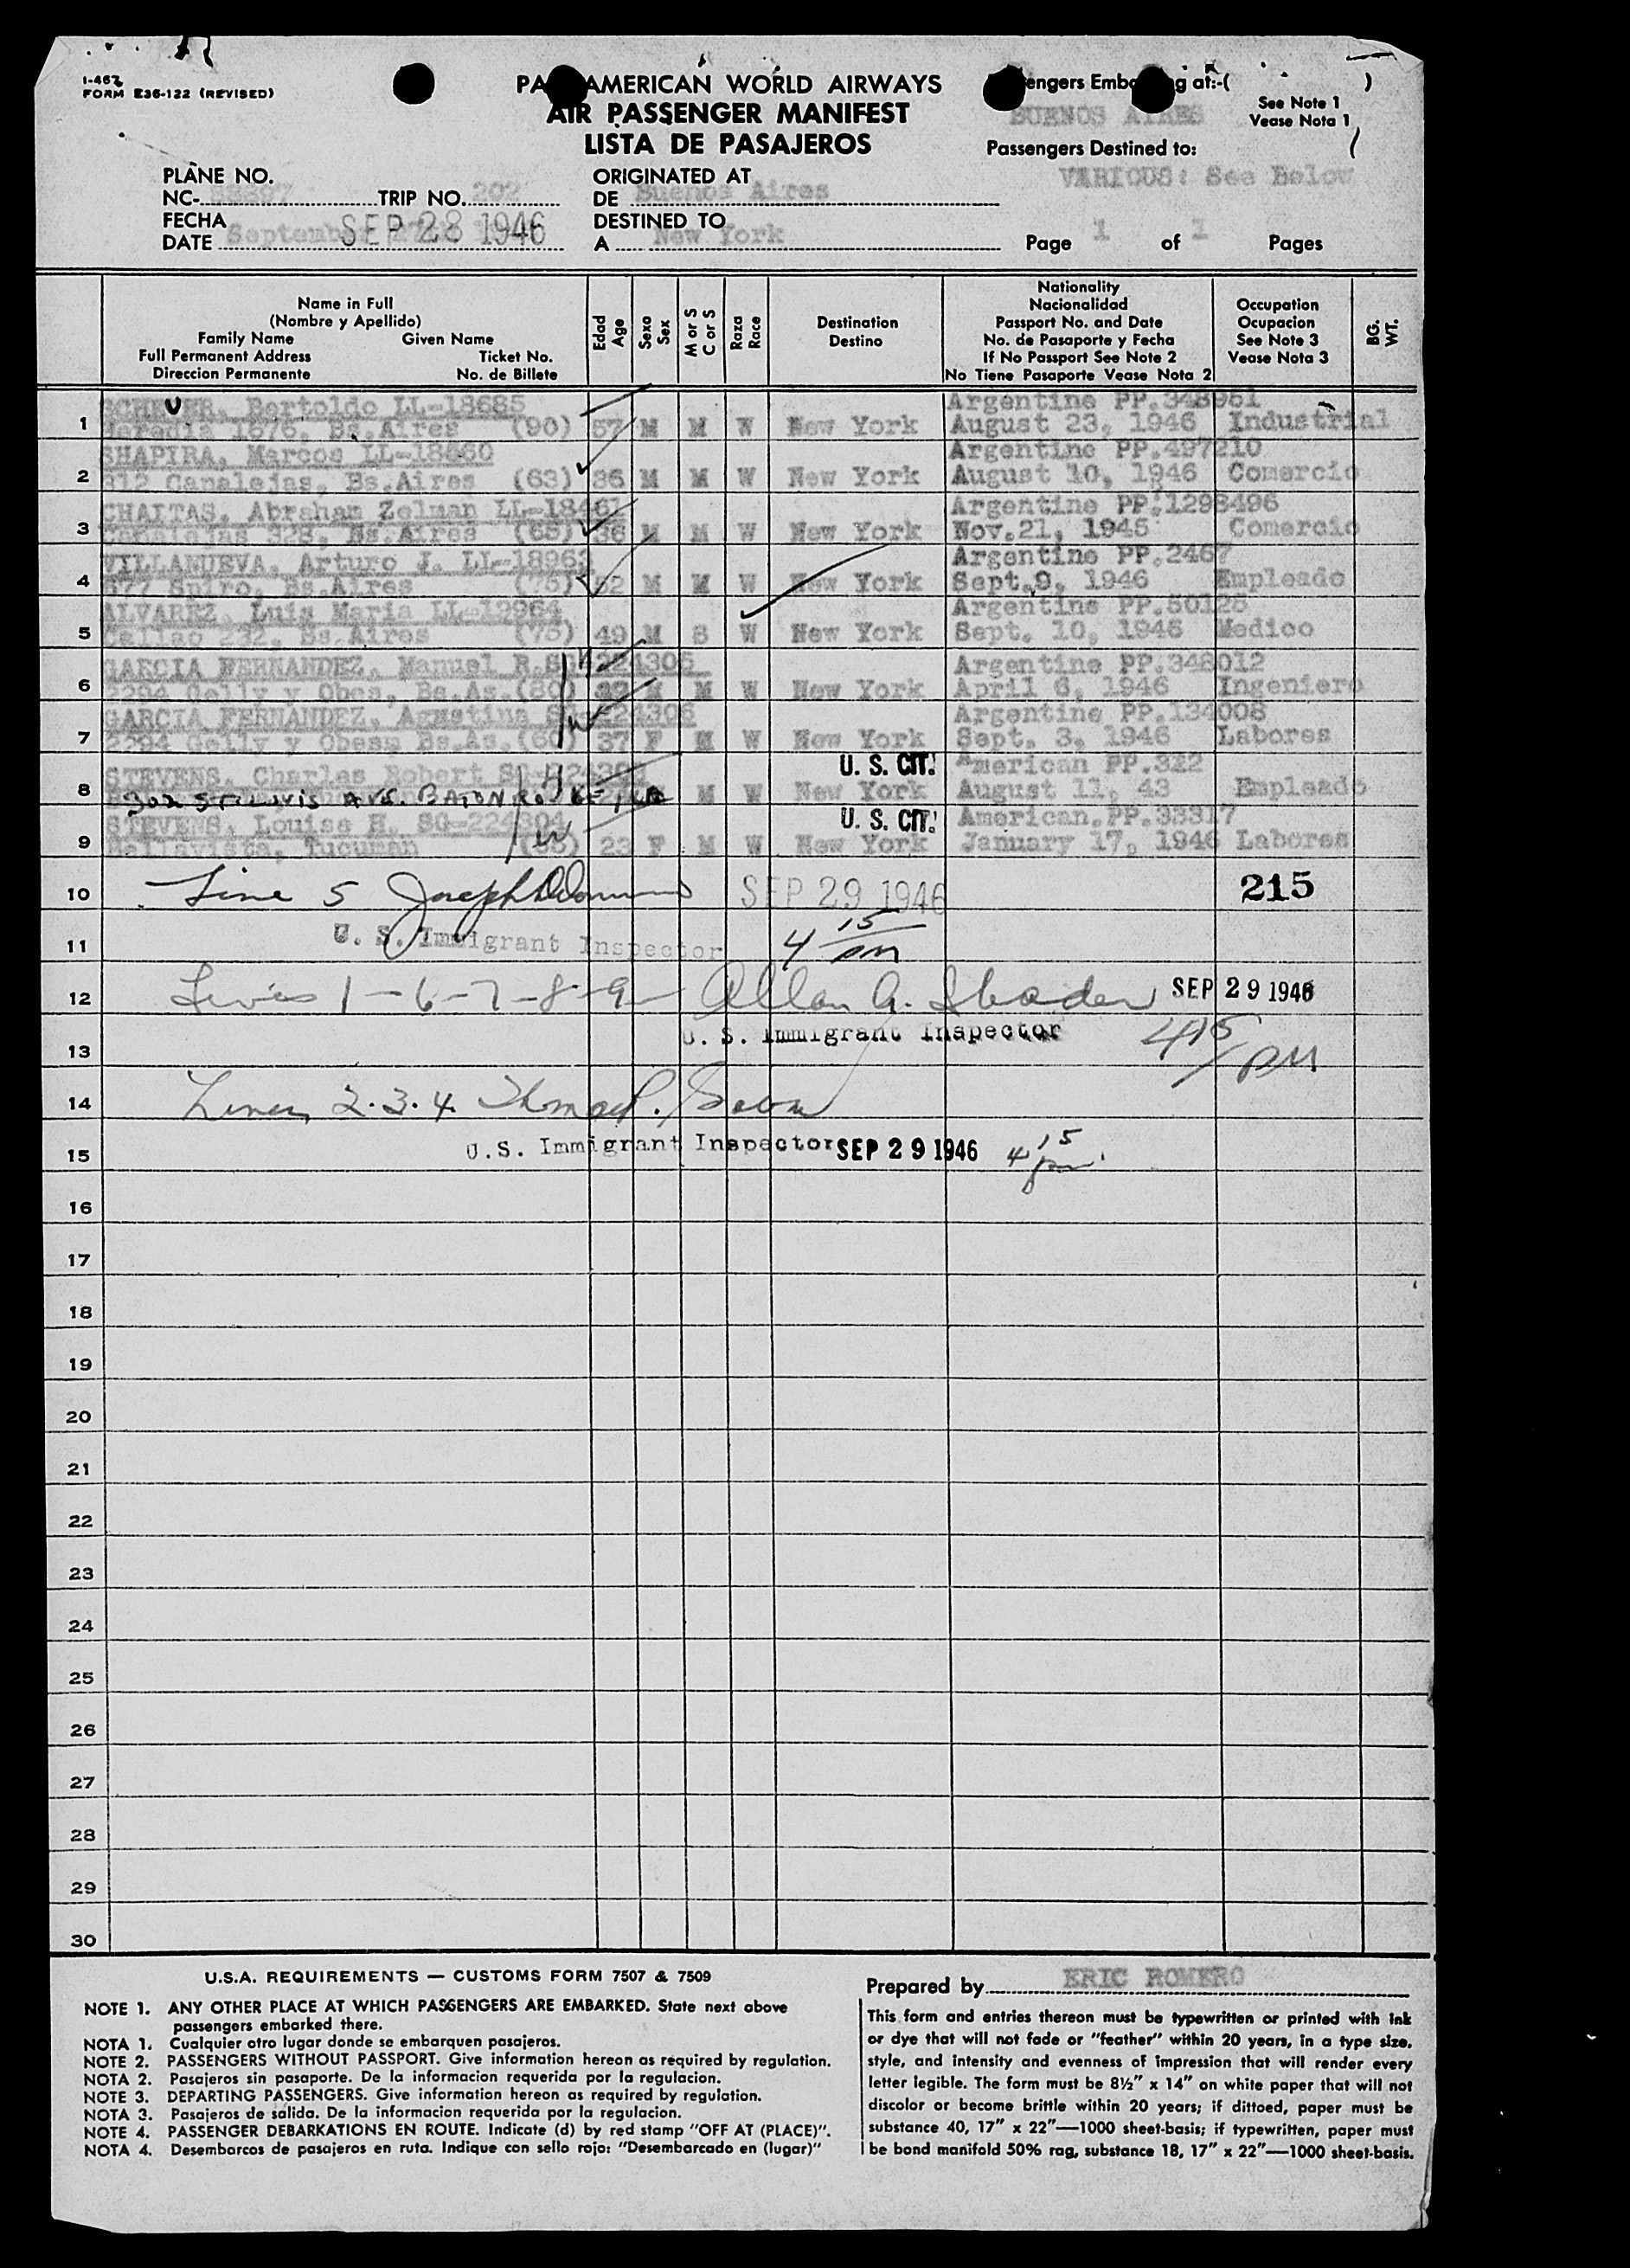 I-467
FORM E36-122 (REVISED)
AMERICAN WORLD AIRWAYS
AIR PASSENGER MANIFEST
LISTA DE PASAJEROS
engers Emba g at:-( )
See Note 1
Vease Nota 1
BUENOS AIRES
Passengers Destined to:
VARIOUS: See Below
PLANE NO.
NC- TRIP NO. 202
ORIGINATED AT
DE Buenos Aires
FECHA
DATE September SEP 28 1946
DESTINED TO
A New York
Page 1 of 1 Pages
Name in Full
(Nombre y Apellido)
Family Name Given Name
Full Permanent Address Ticket No.
Direccion Permanente No. de Billete
Edad
Age
Sexo
Sex
M or S
C or S
Raza
Race
Destination
Destino
Nationality
Nacionalidad
Passport No. and Date
No. de Pasaporte y Fecha
If No Passport See Note 2
No Tiene Pasaporte Vease Nota 2
Occupation
Ocupacion
See Note 3
Vease Nota 3
BG.
WT.
Bertoldo LL-18685 Argentine PP.348961
1 Heredia 1676, Bs.Aires (90) 57 M M W New York August 23, 1946 Industrial
SHAPIRA, Marcos LL-18660 Argentine PP.497210
2 Canalejas, Bs.Aires (63) 36 M M W New York August 10, 1946 Comercio
CHAITAS, Abraham Zelman LL-18461 Argentine PP.1298496
3 Canalejas 328, Bs.Aires (65) 36 M M W New York Nov.21, 1945 Comercio
VILLANUEVA, Arturo J. LL-18963 Argentine PP.2467
4 677 Spiro, Bs.Aires (76) 52 M M W New York Sept.9, 1946 Empleado
ALVAREZ, Luis Maria LL-19964 Argentine PP.50128
5 Callao 232, Bs.Aires (75) 49 M S W New York Sept. 10, 1946 Medico
GARCIA FERNANDEZ, Manuel R. SG-224306 Argentine PP.348012
6 2294 Gelly y Obes, Bs.As.(80) M M W New York April 6, 1946 Ingeniero
GARCIA FERNANDEZ, Agustina SG-224306 Argentine PP.134008
7 2294 Gelly y Obes, Bs.As.(60) 37 F M W New York Sept. 3, 1946 Labores
STEVENS, Charles Robert U. S. CIT. American PP.322
8 302 ST LOUIS AVE. BATON ROUGE, LA M W New York August 11, 43 Empleado
STEVENS, Louise H. SG-224304 U. S. CIT. American.PP.33317
9 Bellavista, Tucuman 23 F M W New York January 17, 1946 Labores
10 Line 5 Joseph SEP 29 1946 215
11 U. S. Immigrant Inspector 4 15 pm
12 Lines 1-6-7-8-9 Allan A. SEP 29 1946
13 U. S. Immigrant Inspector 415 PM
14 Lines 2.3.4. Thomas P.
15 U.S. Immigrant Inspector SEP 29 1946 4 15 pm
16
17
18
19
20
21
22
23
24
25
26
27
28
29
30
U.S.A. REQUIREMENTS — CUSTOMS FORM 7507 & 7509
NOTE 1. ANY OTHER PLACE AT WHICH PASSENGERS ARE EMBARKED. State next above
passengers embarked there.
NOTA 1. Cualquier otro lugar donde se embarquen pasajeros.
NOTE 2. PASSENGERS WITHOUT PASSPORT. Give information hereon as required by regulation.
NOTA 2. Pasajeros sin pasaporte. De la informacion requerida por la regulacion.
NOTE 3. DEPARTING PASSENGERS. Give information hereon as required by regulation.
NOTA 3. Pasajeros de salida. De la informacion requerida por la regulacion.
NOTE 4. PASSENGER DEBARKATIONS EN ROUTE. Indicate (d) by red stamp "OFF AT (PLACE)".
NOTA 4. Desembarcos de pasajeros en ruta. Indique con sello rojo: "Desembarcado en (lugar)"
Prepared by ERIC ROMERO
This form and entries thereon must be typewritten or printed with ink
or dye that will not fade or "feather" within 20 years, in a type size,
style, and intensity and evenness of impression that will render every
letter legible. The form must be 8½" x 14" on white paper that will not
discolor or become brittle within 20 years; if dittoed, paper must be
substance 40, 17" x 22"—1000 sheet-basis; if typewritten, paper must
be bond manifold 50% rag, substance 18, 17" x 22"—1000 sheet-basis.